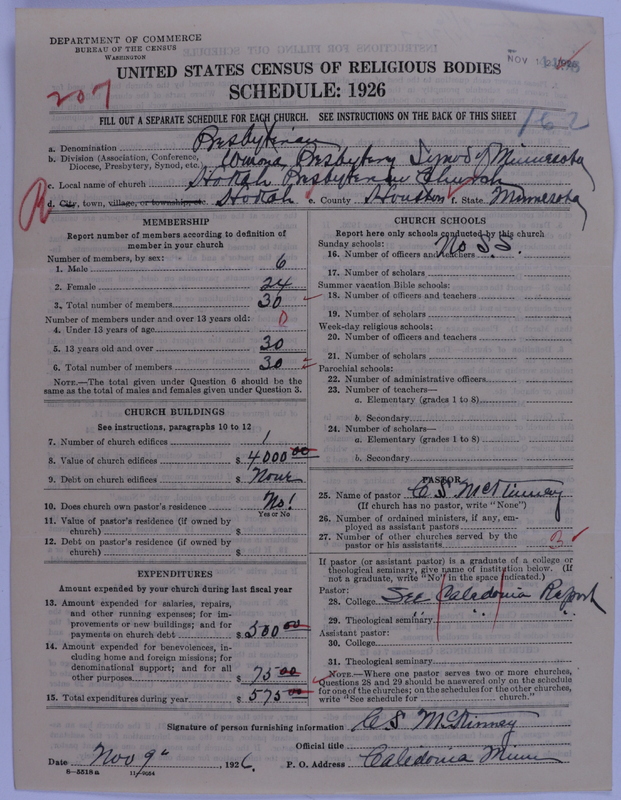 DEPARTMENT OF COMMERCE
BUREAU OF THE CENSUS
WASHINGTON
NOV 1
UNITED STATES CENSUS OF RELIGIOUS BODIES
SCHEDULE: 1926
207
FILL OUT A SEPARATE SCHEDULE FOR EACH CHURCH. SEE INSTRUCTIONS ON THE BACK OF THIS SHEET
162
a. Denomination Presbyterian
b. Division (Association, Conference, Diocese, Presbytery, Synod, etc.) Winona Presbytery Synod of Minnesota
c. Local name of church Hokah Presbyterian Church
R
d. City, town, village, or township, etc. Hokah e. County Houston f. State Minnesota
MEMBERSHIP
Report number of members according to definition of
member in your church
Number of members, by sex:
1. Male 6
2. Female 24
3. Total number of members 30
Number of members under and over 13 years old:
4. Under 13 years of age 0
5. 13 years old and over 30
6. Total number of members 30
NOTE.—The total given under Question 6 should be
same as the total of males and females given under Question 3.
CHURCH BUILDINGS
See instructions, paragraphs 10 to 12
7. Number of church edifices 1
8. Value of church edifices $ 4000 00
9. Debt on church edifices $ None
10. Does church own pastor's residence No!
Yes or No
11. Value of pastor's residence (if owned by
church) $
12. Debt on pastor's residence (if owned by
church) $
EXPENDITURES
Amount expended by your church during last fiscal year
13. Amount expended for salaries, repairs,
and other running expenses; for im-
provements or new buildings; and for
payments on church debt $ 500 00
14. Amount expended for benevolences, in-
cluding home and foreign missions; for
denominational support; and for all
other purposes $ 75 00
15. Total expenditures during year $ 575 00
CHURCH SCHOOLS
Report here only schools conducted by this church
Sunday schools:
16. Number of officers and teachers No S S.
17. Number of scholars
Summer vacation Bible schools:
18. Number of officers and teachers
19. Number of scholars
Week-day religious schools:
20. Number of officers and teachers
21. Number of scholars
Parochial schools:
22. Number of administrative officers
23. Number of teachers—
a. Elementary (grades 1 to 8)
b. Secondary
24. Number of scholars—
a. Elementary (grades 1 to 8)
b. Secondary
PASTOR
25. Name of pastor C S McKinney
(If church has no pastor, write "None")
26. Number of ordained ministers, if any, em-
ployed as assistant pastors
27. Number of other churches served by the
pastor or his assistants 3
If pastor (or assistant pastor) is a graduate of a college or
theological seminary, give name of institution below. (If
not a graduate, write "No" in the space indicated.)
Pastor:
28. College See Caledonia Report
29. Theological seminary " "
Assistant pastor:
30. College
31. Theological seminary
NOTE.—Where one pastor serves two or more churches,
Questions 28 and 29 should be answered only on the schedule
for one of the churches; on the schedules for the other churches,
write "See schedule for church."
Signature of person furnishing information C S McKinney
Official title
Date Nov 9", 1926. P. O. Address Caledonia Minn
8—5518 a 11—9084